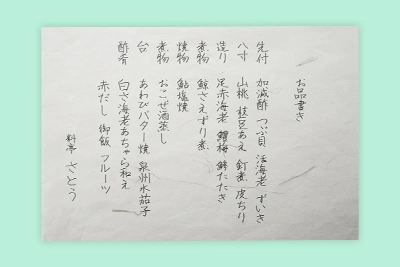 お品書き
先付 加減酢 つぶ貝 活海老 ずいき
八寸 山桃 枝豆あえ 釘煮 皮ちり
造り 足赤海老 梅 鯵たたき
煮物 鯨さえずり煮
焼物 鮎塩焼
煮物 おこぜ酒蒸し
台 あわびバター焼 泉州水茄子
酢肴 白さ海老あちゃら和え
赤だし 御飯 フルーツ
料亭 さとう